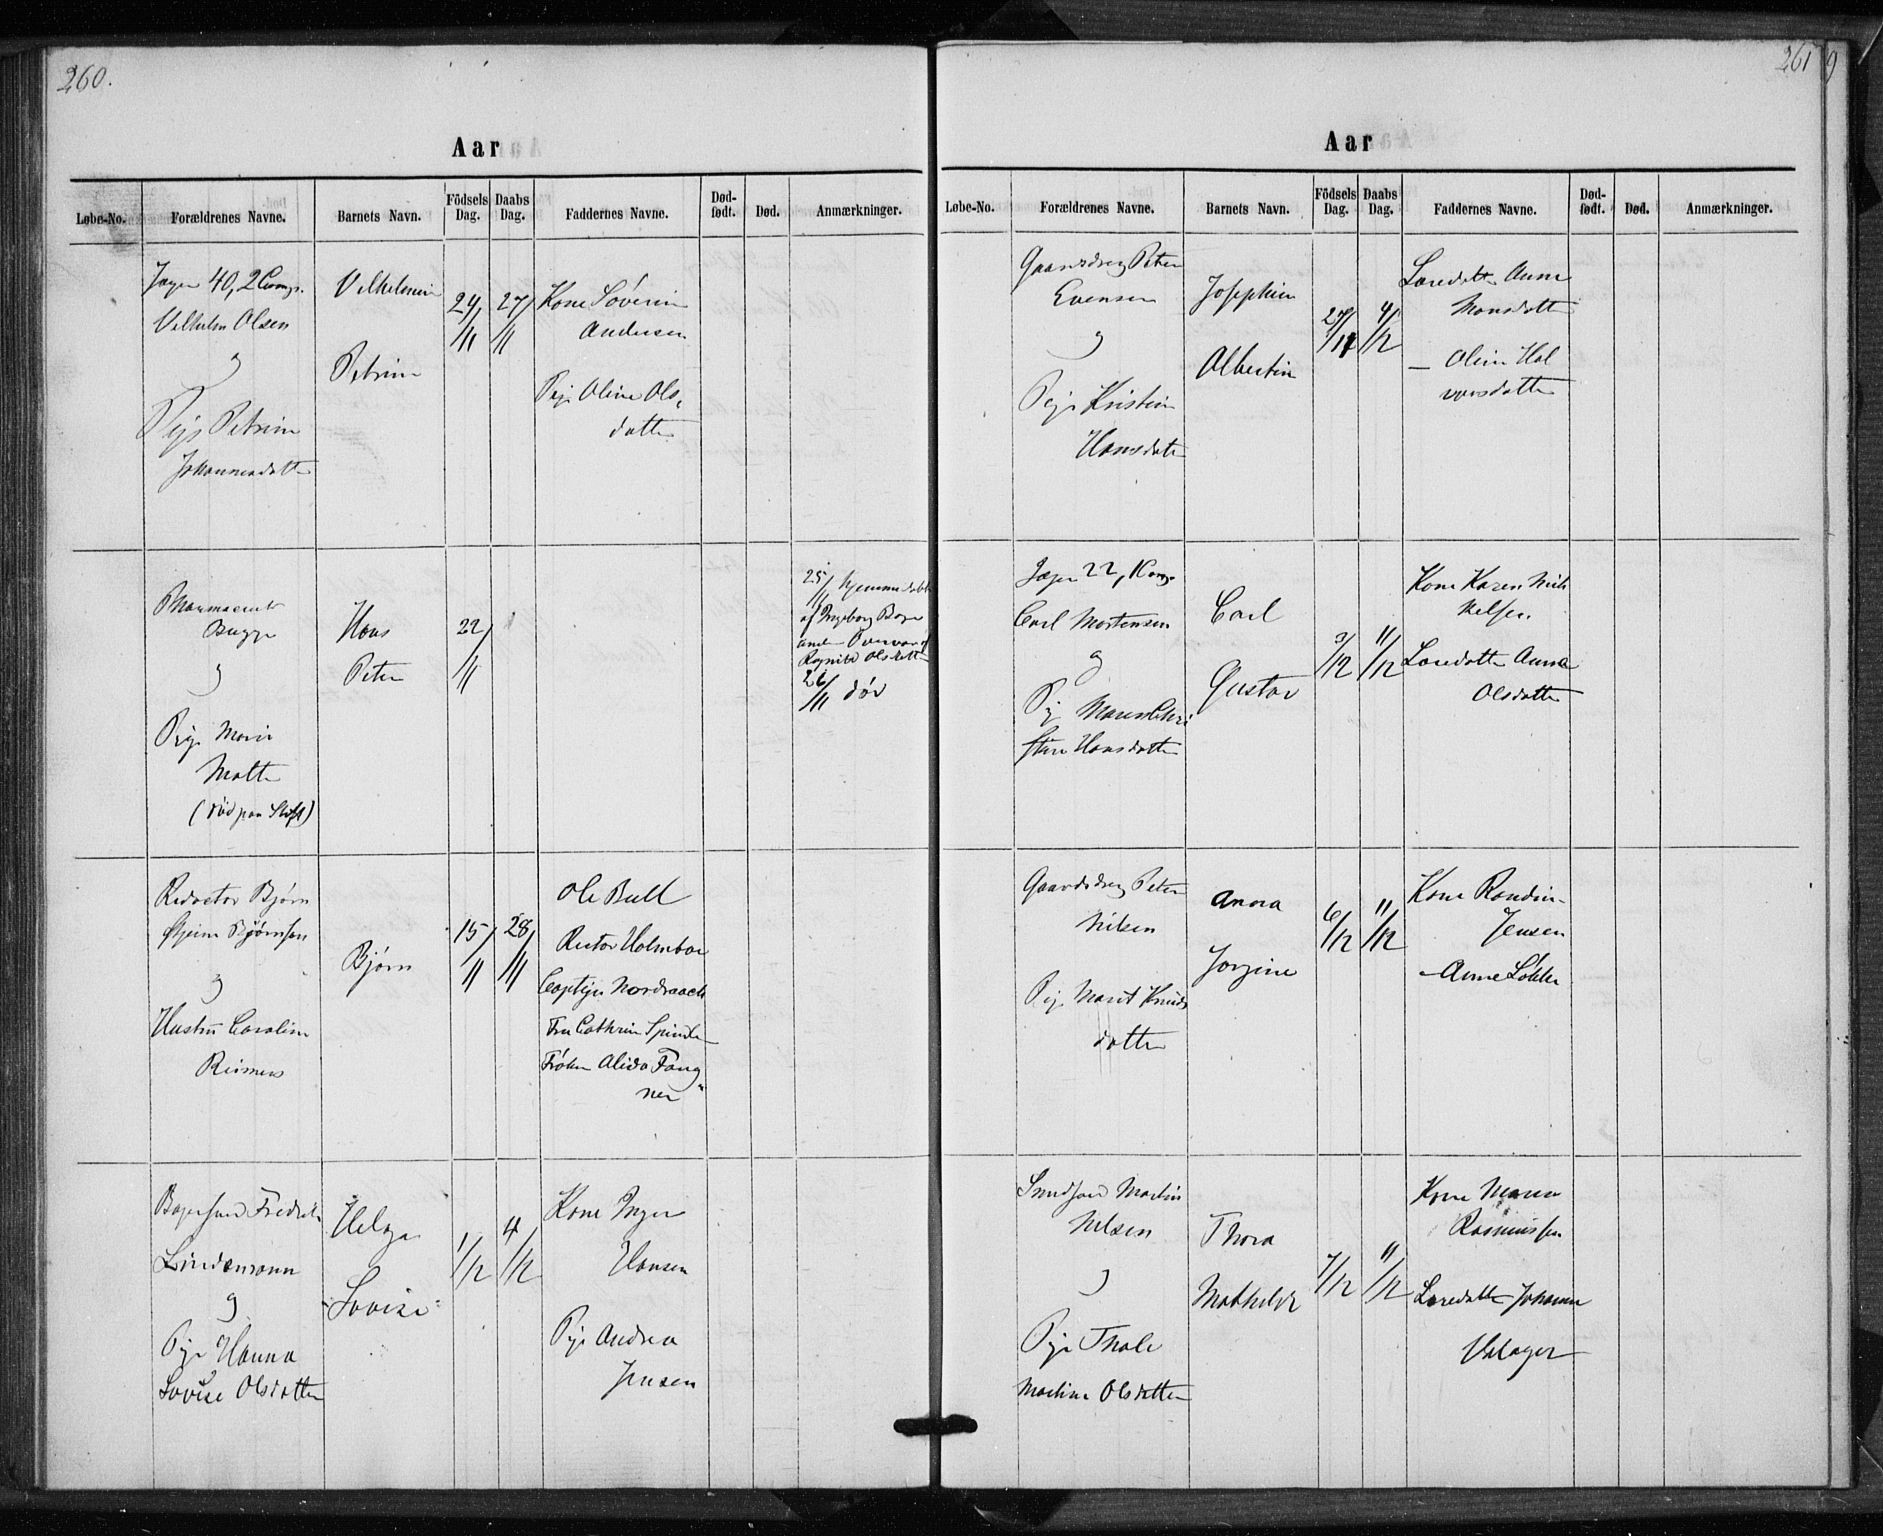 260.
Aar
Løbe-No. Forældrenes Navne. Barnets Navn. Födsels Dag. Daabs Dag. Faddernes Navne. Død-født. Død. Anmærkninger.
Jæger 40, 2 Comp.
Vilhelm Olsen
og
Pige Petrine
Johannesdatter
Vilhelmine
Petrine
24/11
27/11
Kone Søverine
Andersen
Pige Oline Ols-
datter
Pharmaceut
Bugge
og
Pige Marie
Mathe
Hans
Peter
22/11
25/11 hjemmedøbt
af Ingeborg
Ragnild Olsdatter
26/11 död
Redactør Bjørn
stjerne Bjørnson
og
Hustru Caroline
Reimers
Bjørn
15/11
28/11
Ole Bull
Rector Holmboe
Captejn Nordraach
Fru Cathrine
Frøken Alida Fang
ner
Bagersvend Fredrik
Lindemann
og
Pige Hanna
Lovise Olsdatter
Helga
Lovise
1/12
4/12
Kone Inger
Hansen
Pige Andrea
Jensen
261
9
Aar
Løbe-No. Forældrenes Navne. Barnets Navn. Födsels Dag. Daabs Dag. Faddernes Navne. Død-født. Død. Anmærkninger.
Gaardsdreng Peter
Evensen
og
Pige Kristine
Hansdatter
Josephine
Albertine
27/11
4/12
Løsedatter Anne
Monsdatter
— Oline Hal
vorsdatter
Jæger 22, 1 Komp.
Carl Mortensen
og
Pige Maren Chri
stine Hansdatter
Carl
Gustav
3/12
11/12
Kone Karen Mik
kelsen
Løsedatter Anna
Olsdatter
Gaardsdreng Peter
Nilsen
Pige Marit Knuds
datter
Anna
Jorgine
6/12
11/12
Kone Randine
Jensen
— Anne Løkke
Smedsvend Martin
Nilsen
og
Pige Thale
Martine Olsdatter
Thora
Mathilde
7/12
11/12
Kone Maren
Rasmussen
Løsedatter Johanne